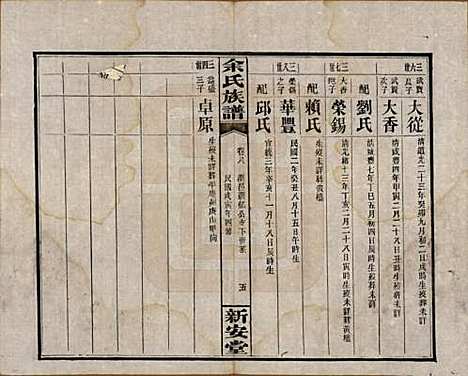 三六世
武賢長子
大從
清道光二十三年癸卯九月初二日戌時生歿葬未詳
武賢次子
大香
清咸豐四年甲寅二月二十八日丑時生歿葬未詳
配
劉氏
清咸豐七年丁巳五月初四日辰時生歿葬未詳
三七世
大香
榮錫
清光緒十三年丁亥二月二十八日寅時生歿未詳葬黃壇
配
賴氏
生歿未詳葬黃壇
三八世
榮錫之子
華豐
民國二年癸丑八月十五日午時生
配
邱氏
宣統三年辛亥十一月十八日辰時生
余氏族譜
卷八
民國戊寅年四修
五
新安堂
三四世
三子
卓原
生歿未詳葬